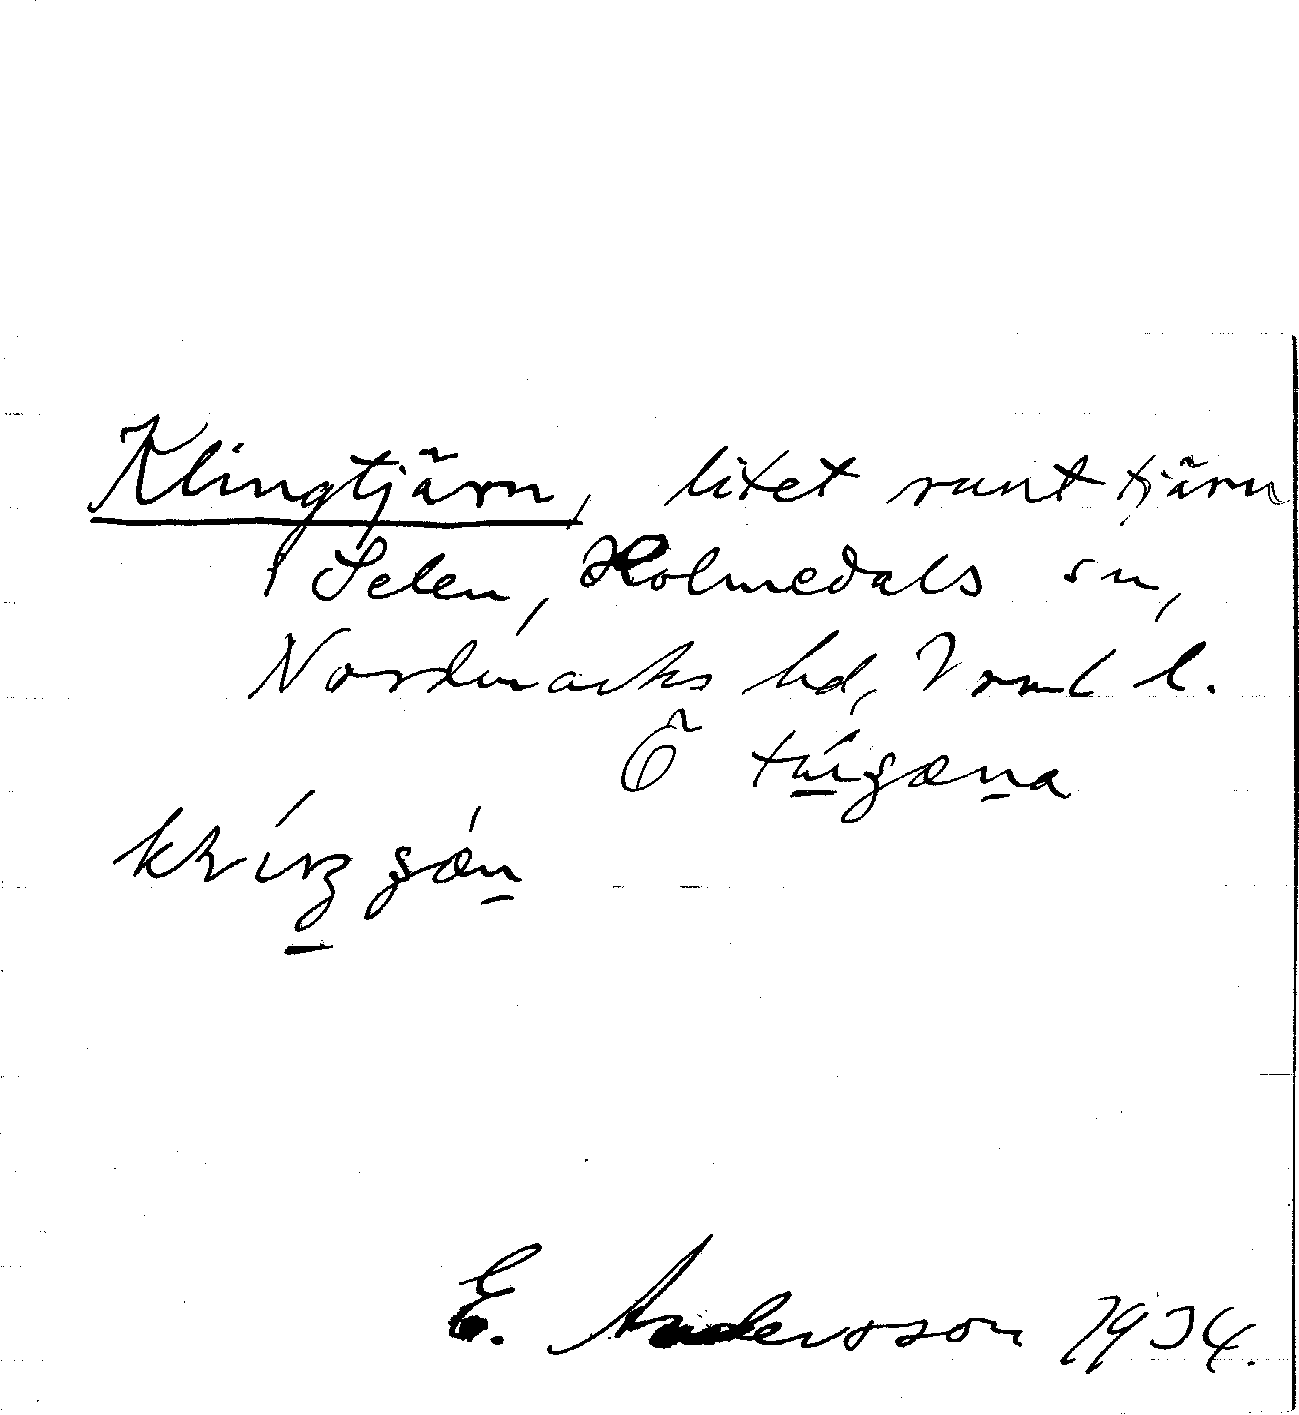 Klingtjärn, litet runt tjärn
i Selen, Holmedals sn,
Nordmarks hd, Vrml l.
E. Andersson 1934.